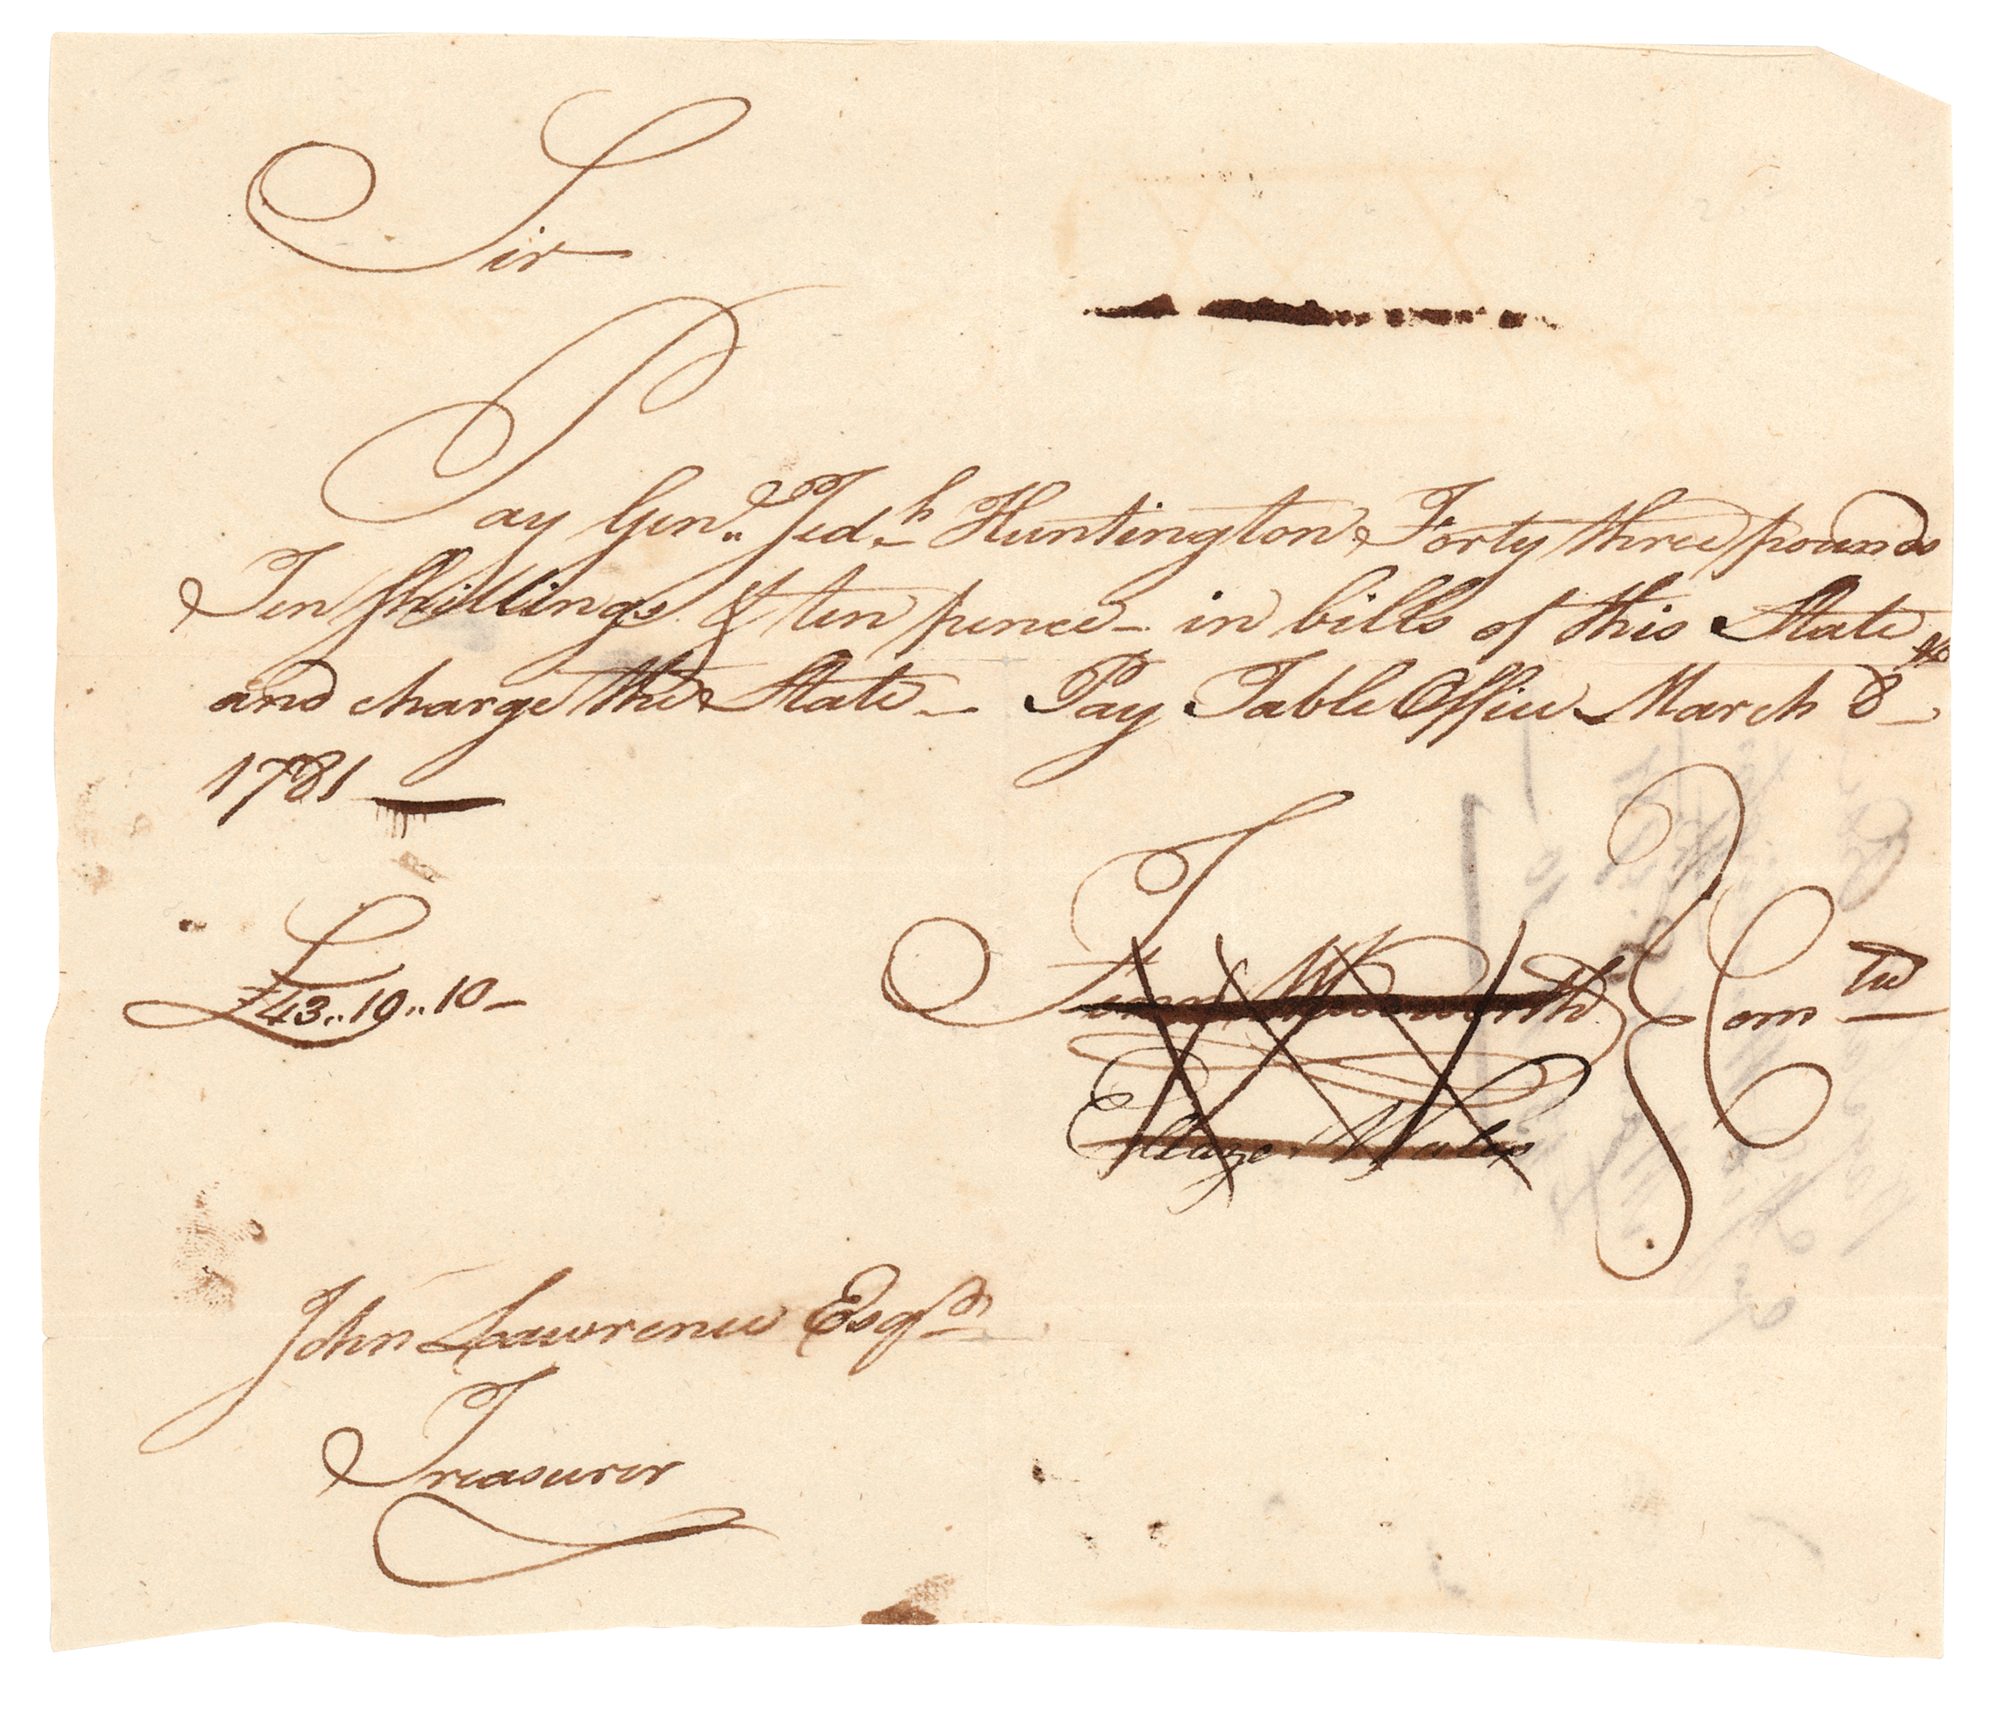 Sir
Pay Genl. Jedh Huntington Forty three pounds
Ten shillings & ten pence - in bills of this State
and charge the State - Pay Table Office March 8th
1781
£43..10..10-
Fenn Wadsworth } Comtee
Eleazer Wales
John Lawrence Esqr
Treasurer